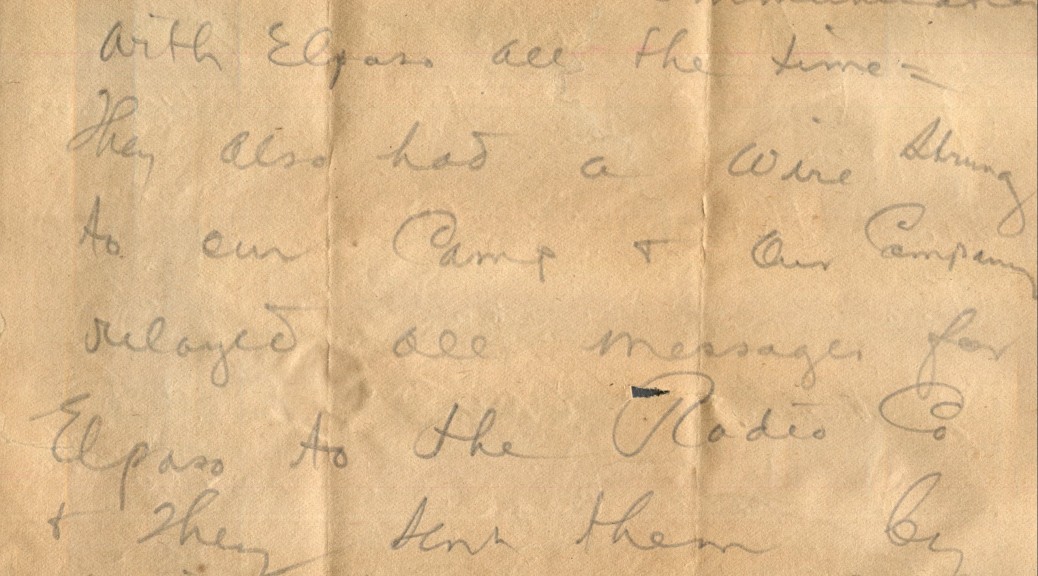 with Elpaso all the time =
They also had a wire strung
to our Camp & Our Company
relayed all messages for
Elpaso to the Radio Co
& they sent them by